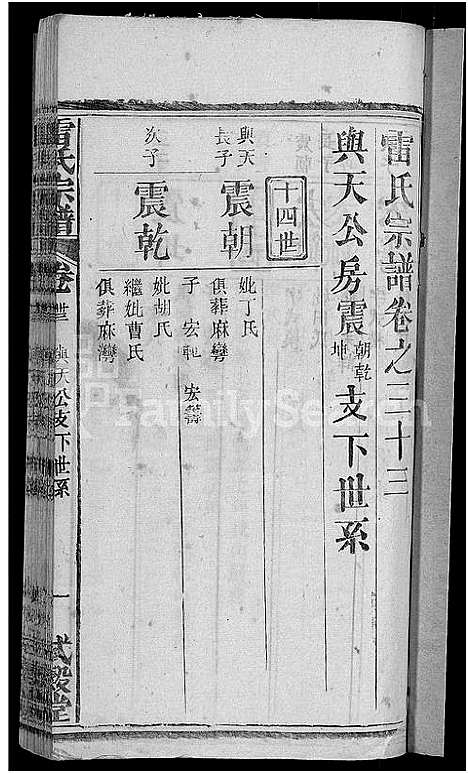 雷氏宗譜卷之三十三
與天公房震朝乾坤支下世系
十四世
與天長子
震朝
妣丁氏
俱葬麻灣
子 宏軏 宏
次子
震乾
妣胡氏
繼妣曹氏
俱葬麻灣
雷氏宗譜
卷卅三 與天公支下世系
一
式穀堂
FamilySearch